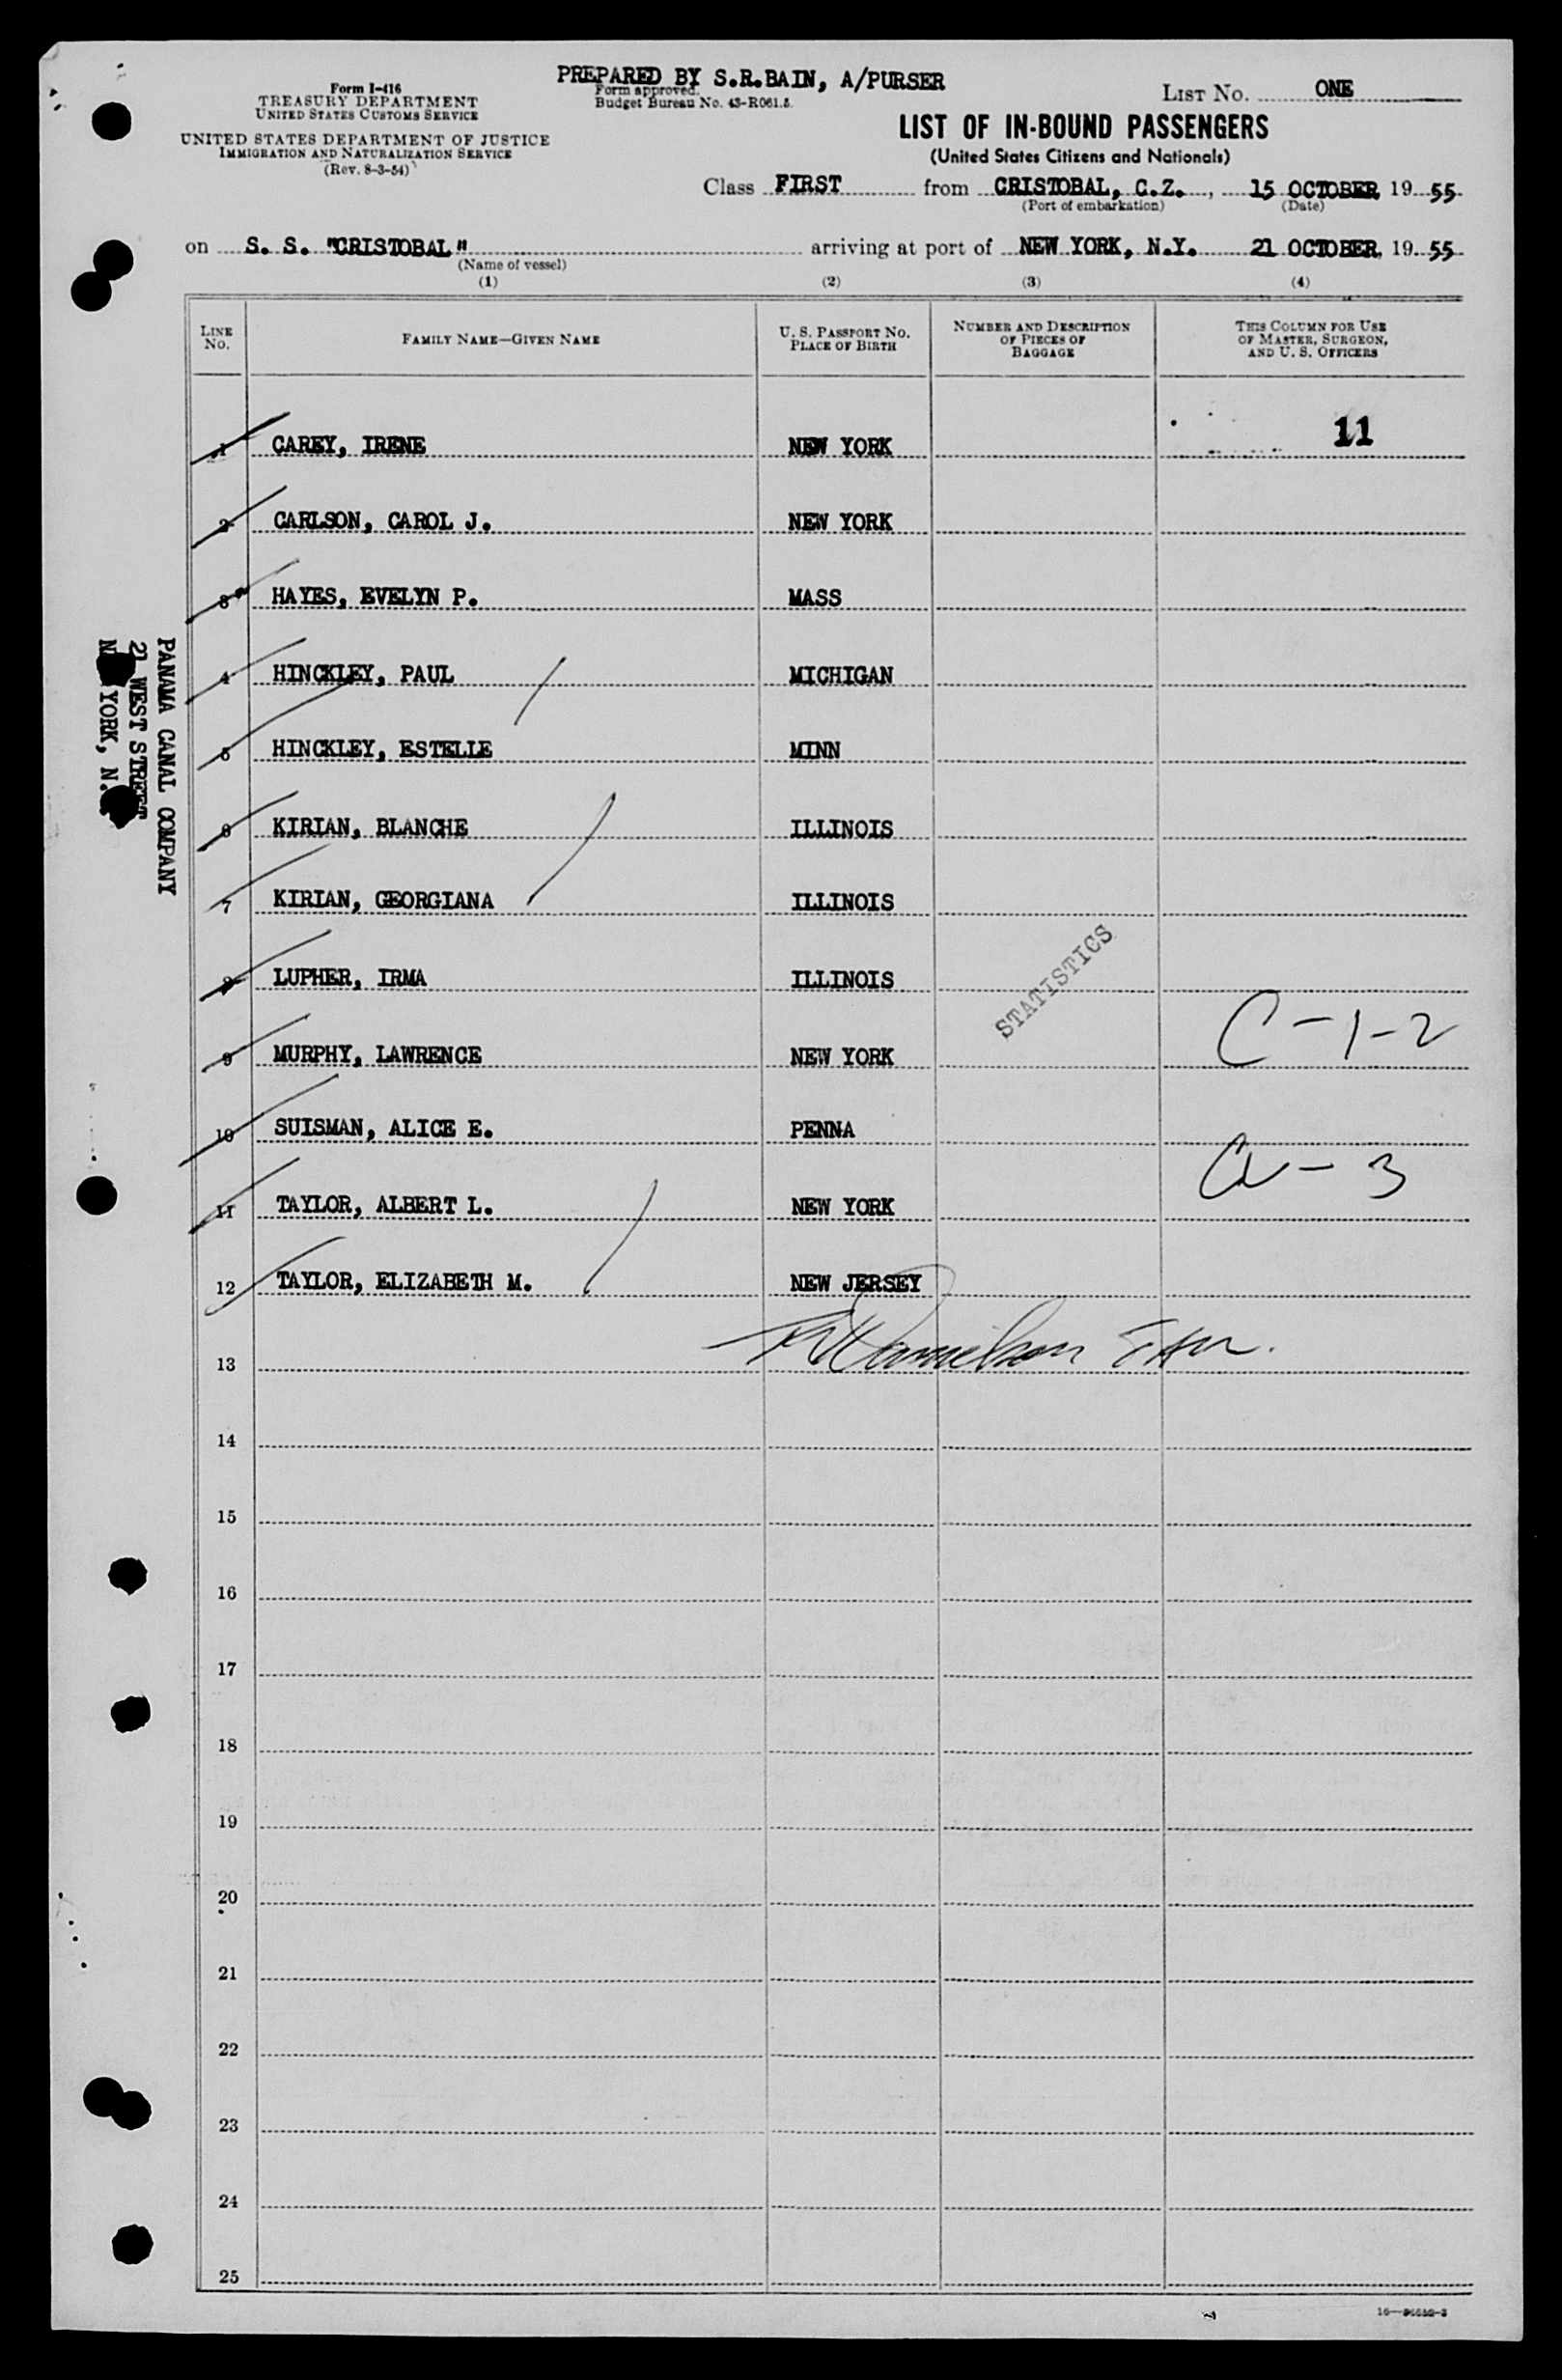 PREPARED BY S.R.BAIN, A/PURSER
Form I-416
TREASURY DEPARTMENT
UNITED STATES CUSTOMS SERVICE
UNITED STATES DEPARTMENT OF JUSTICE
IMMIGRATION AND NATURALIZATION SERVICE
(Rev. 8-3-54)
Form approved.
Budget Bureau No. 43-R061.5.
LIST NO. ONE
LIST OF IN-BOUND PASSENGERS
(United States Citizens and Nationals)
Class FIRST from CRISTOBAL, C.Z., 15 OCTOBER, 19 55
(Port of embarkation) (Date)
on S. S. "CRISTOBAL" arriving at port of NEW YORK, N.Y. 21 OCTOBER, 19 55
(Name of vessel)
(1) (2) (3) (4)
LINE NO. FAMILY NAME—GIVEN NAME U. S. PASSPORT NO. PLACE OF BIRTH NUMBER AND DESCRIPTION OF PIECES OF BAGGAGE THIS COLUMN FOR USE OF MASTER, SURGEON, AND U. S. OFFICERS
1 CAREY, IRENE NEW YORK 11
2 CARLSON, CAROL J. NEW YORK
3 HAYES, EVELYN P. MASS
4 HINCKLEY, PAUL MICHIGAN
5 HINCKLEY, ESTELLE MINN
6 KIRIAN, BLANCHE ILLINOIS
7 KIRIAN, GEORGIANA ILLINOIS
8 LUPHER, IRMA ILLINOIS
STATISTICS
9 MURPHY, LAWRENCE NEW YORK C-1-2
10 SUISMAN, ALICE E. PENNA
11 TAYLOR, ALBERT L. NEW YORK - 3
12 TAYLOR, ELIZABETH M. NEW JERSEY
13
14
15
16
17
18
19
20
21
22
23
24
25
PANAMA CANAL COMPANY
21 WEST STREET
YORK, N.